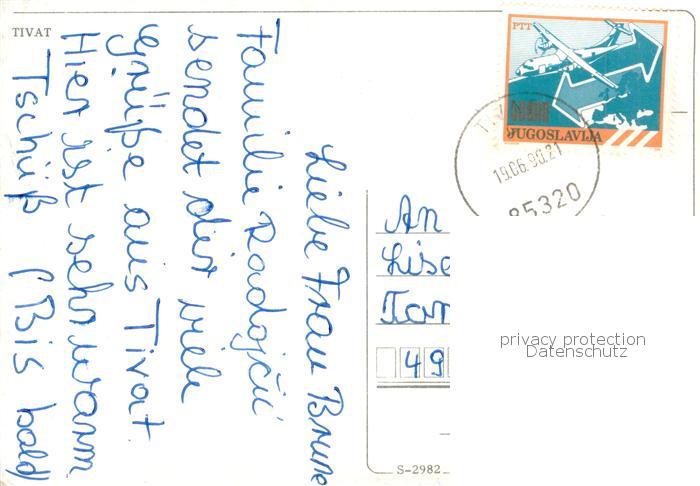 TIVAT
Liebe Frau Brune
Familie Radojčić
sendet dir viele
Grüße aus Tivat.
Hier ist sehr warm
Tschüß (Bis bald)
PTT
JUGOSLAVIJA
19.06.90.21
85320
An
Lise
49
S-2982
privacy protection
Datenschutz